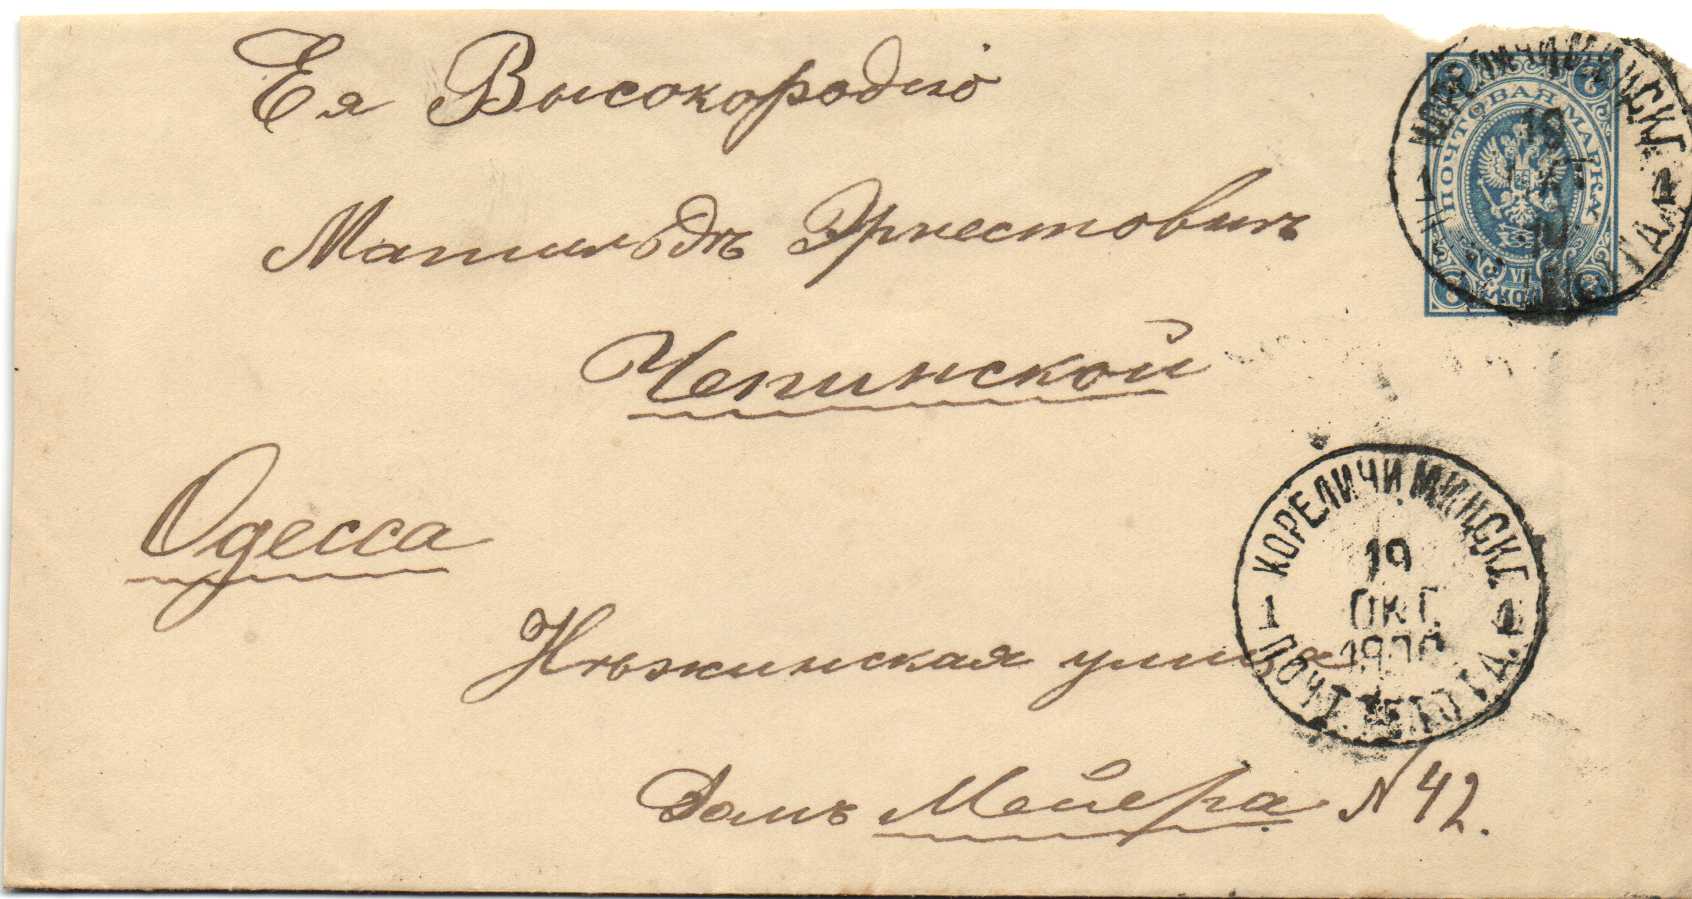 Ея Высокородію
Матильдѣ Эрнестовнѣ
Чепинской
Одесса
Нѣжинская улица
Домъ Мейера N 42.
ПОЧТОВАЯ МАРКА
7
КОРЕЛИЧИ МИНСК. Г.
19
ОКТ
1900
1 1
ПОЧТ. ТЕЛ. ОТД.
КОРЕЛИЧИ МИНСК. Г.
19
1 1